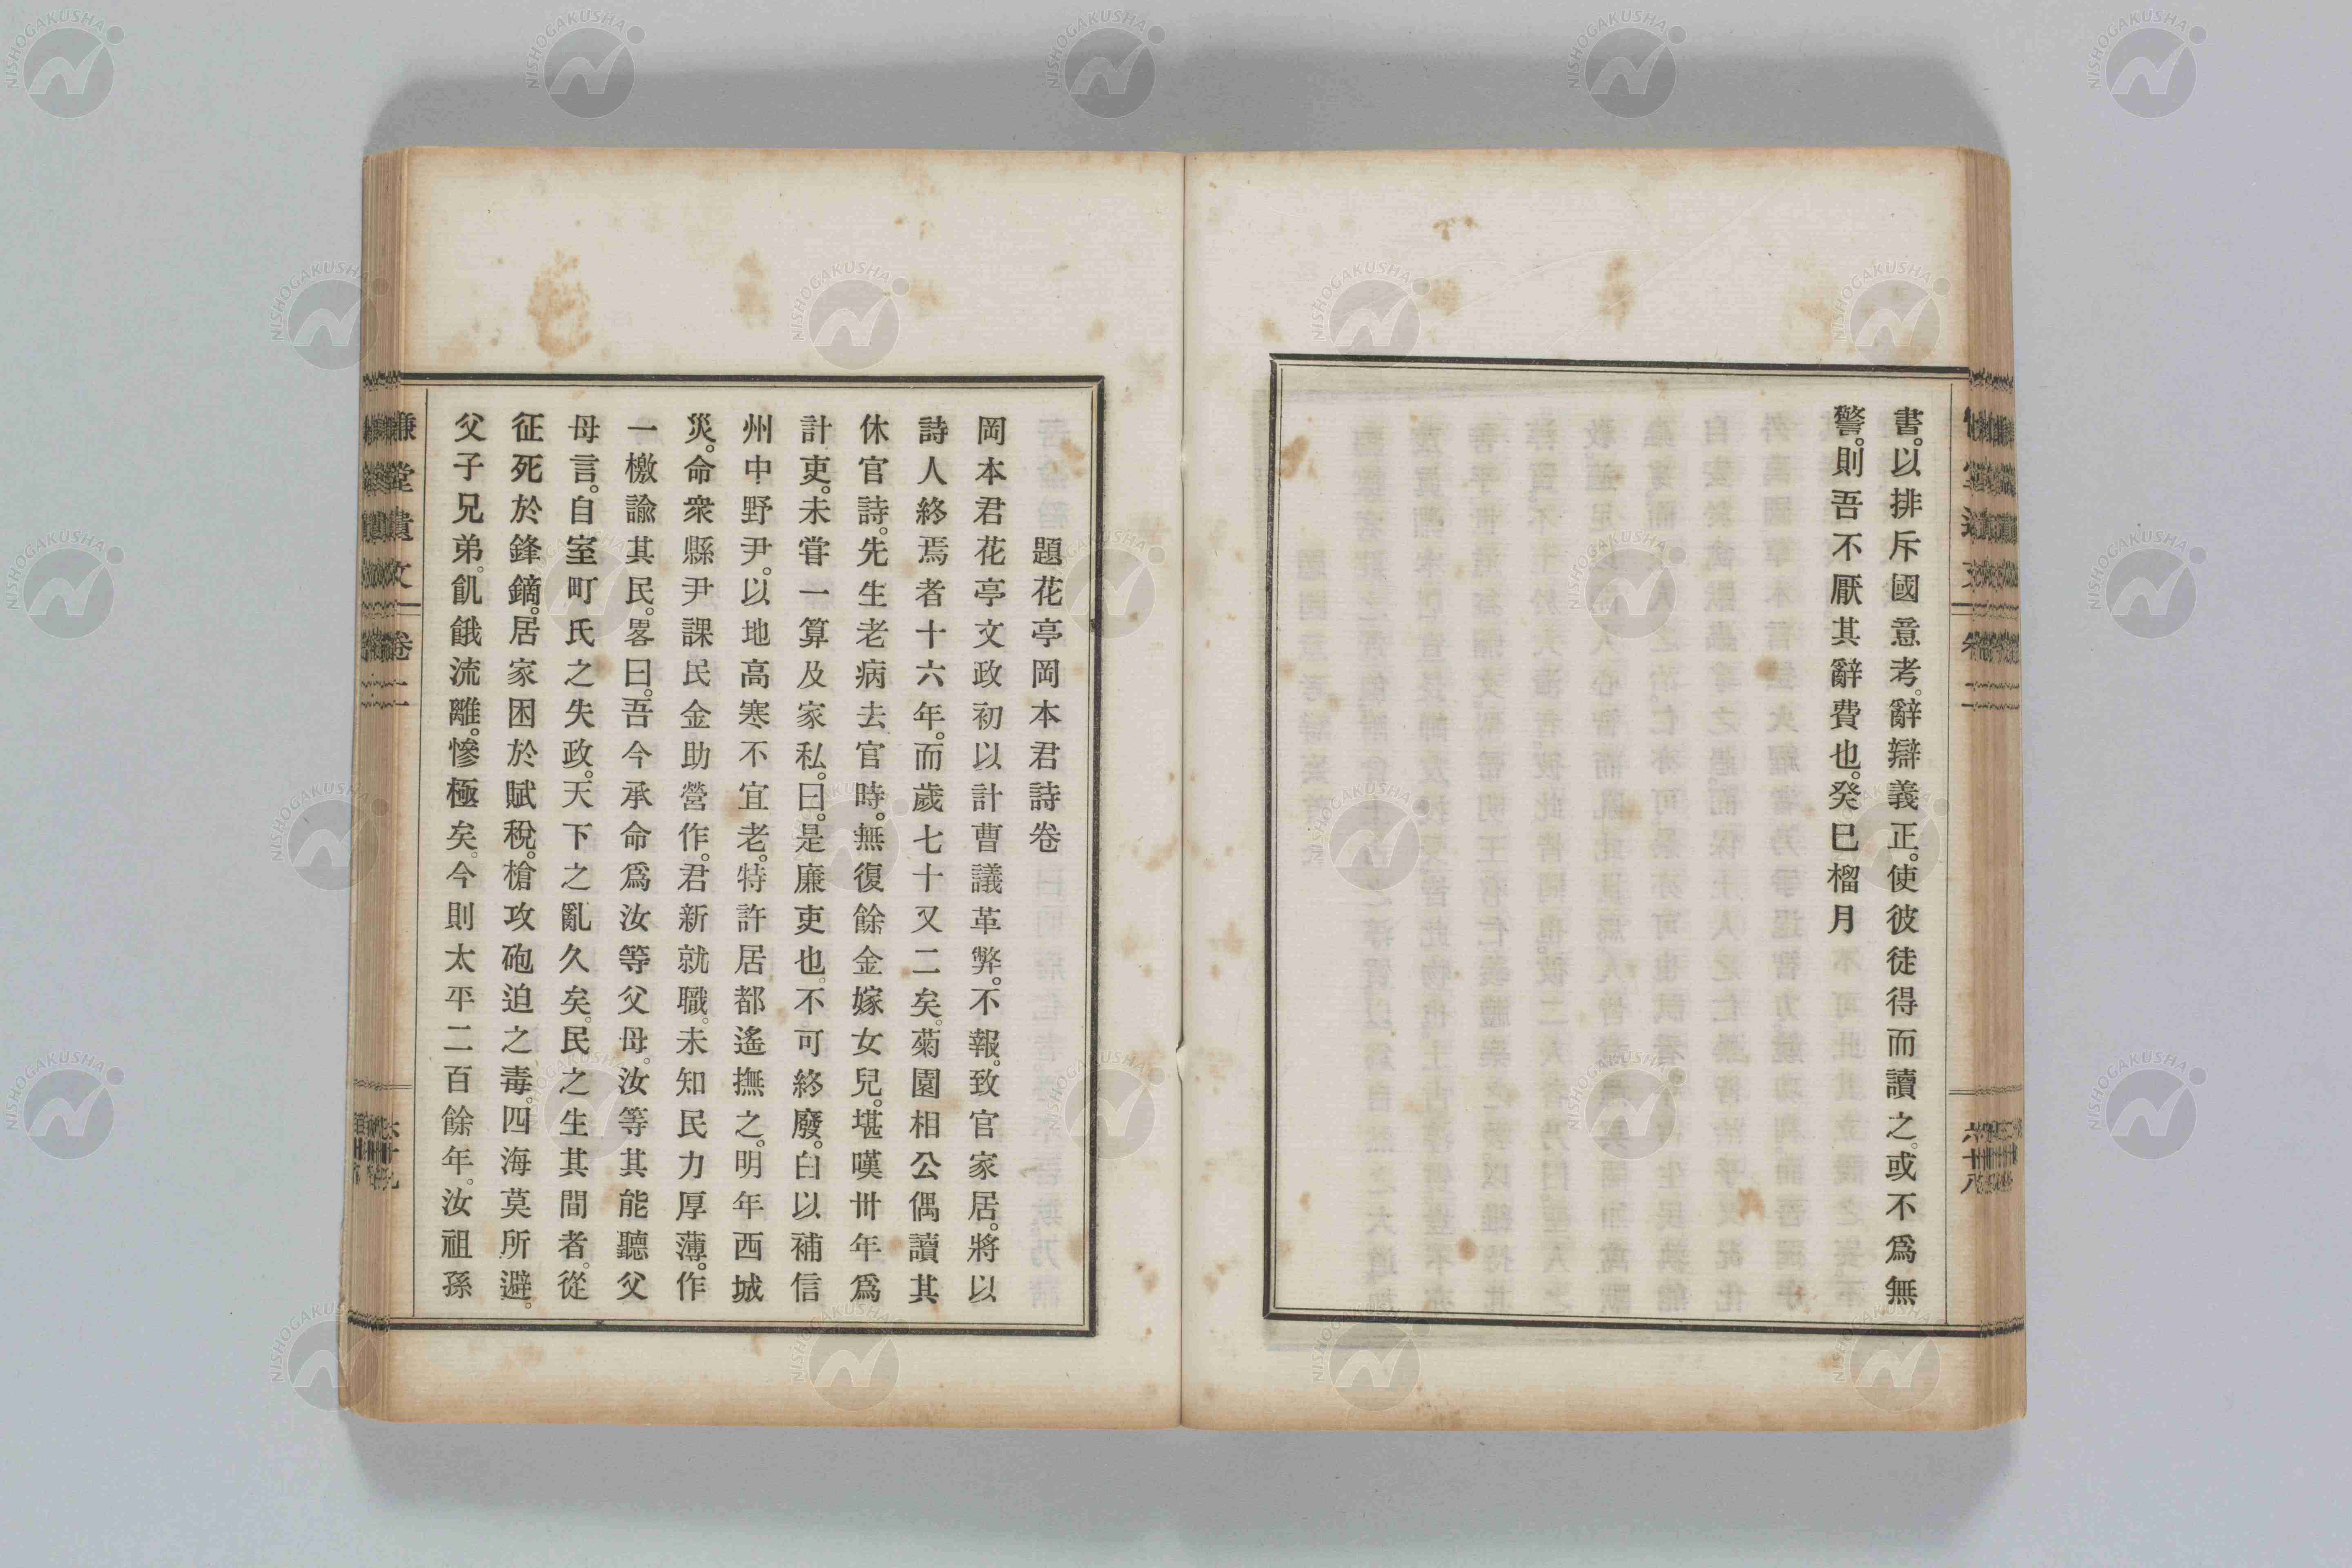 書。以排斥國意考。辭辯義正。使彼徒得而讀之。或不爲無
警。則吾不厭其辭費也。癸巳榴月
六十八
題花亭岡本君詩卷
岡本君花亭文政初以計曹議革弊。不報。致官家居。將以
詩人終焉者十六年。而歲七十又二矣。菊園相公偶讀其
休官詩。先生老病去官時。無復餘金嫁女兒。堪嘆丗年爲
計吏。未甞一算及家私。曰。是廉吏也。不可終廢。白以補信
州中野尹。以地高寒不宜老。特許居都遙撫之。明年西城
災。命衆縣尹課民金助營作。君新就職。未知民力厚薄。作
一檄諭其民。畧曰。吾今承命爲汝等父母。汝等其能聽父
母言。自室町氏之失政。天下之亂久矣。民之生其間者。從
征死於鋒鏑。居家困於賦稅。槍攻砲迫之毒。四海莫所避。
父子兄弟。飢餓流離。慘極矣。今則太平二百餘年。汝祖孫
慊堂遺文 卷二
NISHOGAKUSHA